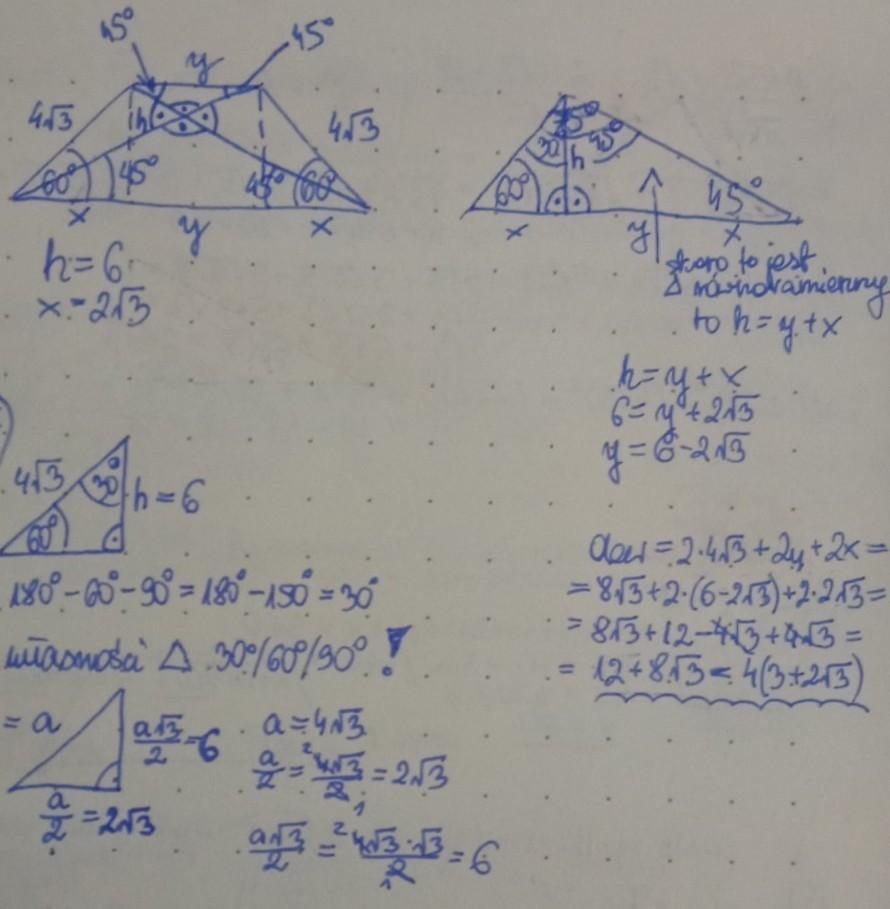 45° 45°
y
4√3 h 4√3
60° 45° 45° 60°
x y x
h = 6
x = 2√3
75°
30° 45°
h
60° 45°
x y x
skoro to jest
Δ równoramienny
to h = y + x
h = y + x
6 = y + 2√3
y = 6 - 2√3
4√3 30° h = 6
60°
180° - 60° - 90° = 180° - 150° = 30°
własności Δ 30°/60°/90° !
= a a√3/2 = 6
a/2 = 2√3
a = 4√3
a/2 = 4√3/2 = 2√3
a√3/2 = 4√3·√3/2 = 6
= 2·4√3 + 2y + 2x =
= 8√3 + 2·(6-2√3) + 2·2√3 =
= 8√3 + 12 - 4√3 + 4√3 =
= 12 + 8√3 = 4(3+2√3)